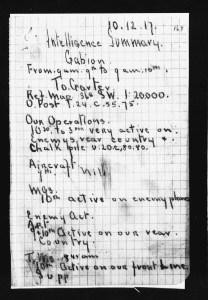 10.12.17.
Intelligence Summary.
Gabion
From 9 am. 9th to 9 am. 10th.
To Garter
Ref Map 36a SW. 1:20000.
O. Post T.24.C.55.75.
Our Operations.
to 3 pm very active on
Enemys rear country &
Chalk pile U.20.c.80.80.
Aircraft
Nill
MGs.
10a active on enemy plane
Enemy Act.
Active on our rear
Country.
T.Ms. 8 to am
Active on our front line
Supp